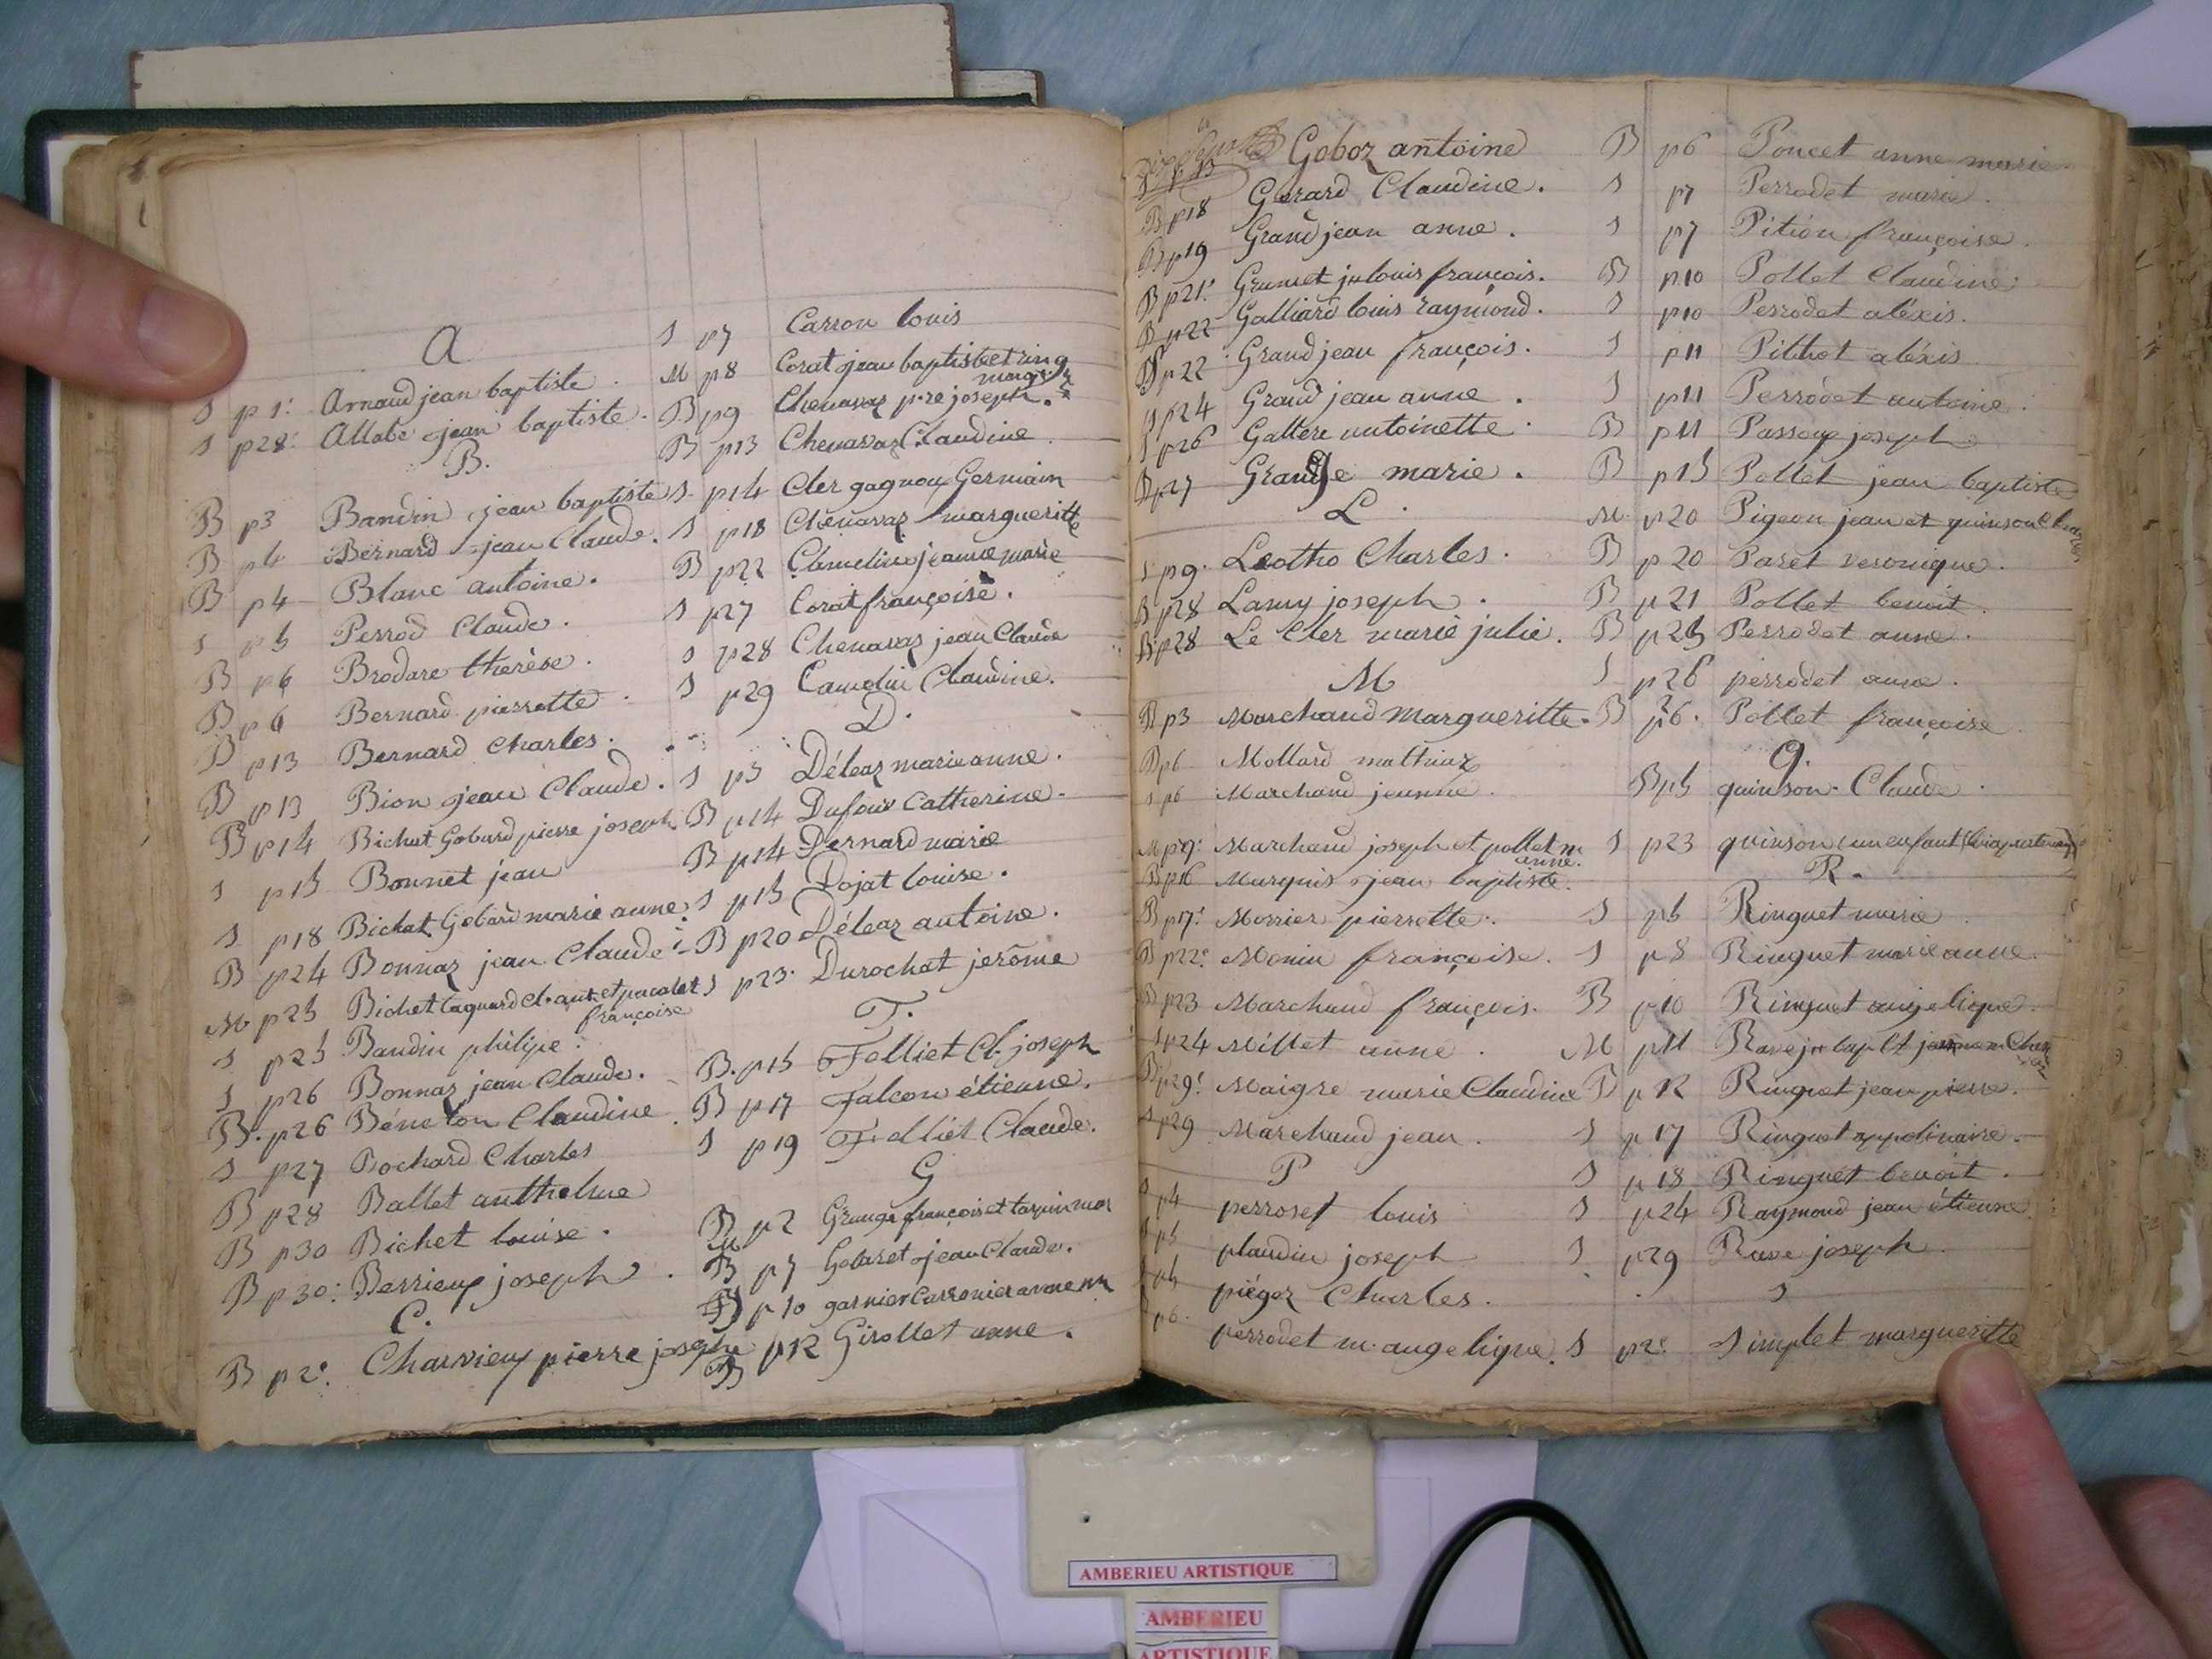 A
S p 1. Arnaud jean baptiste.
S p28. Allabe jean baptiste.
B.
B p3 Bandin jean baptiste
B p4 Bernard jean Claude.
B p4 Blanc antoine.
S p5 Perrod Claude.
B p6 Brodare therèse.
B p6 Bernard pierrette
B p13 Bernard Charles.
B p13 Bion jean Claude.
B p14 Bichat Gobard pierre joseph
S p15 Bonnet jean
S p18 Bichat Gobard marie anne
B p24 Bonnaz jean Claude
M p25 Bichet et
françoise
S p25 Baudin philipe.
S p26 Bonnaz jean Claude.
B. p26 Béneton Claudine
S p27 Bochard Charles
B p28 Ballet anthelme
B p30 Bichet louise.
B p30. Berrieux joseph.
C.
B p2. Charvieux pierre joseph
S p7 Carron louis
M p8 Corat jean baptiste et ring
B p9 Chenavaz p.re joseph.
B p13 Chenavaz Claudine
S p14 Cler gagnoux Germain
S p18 Chenavaz margueritte
B p22 jeanne marie
S p27 Corat françoise.
S p28 Chenavaz jean Claude
S p29 Camelin Claudine.
D.
S p5 Déleaz marie anne.
B p14 Dufour Catherine.
B p14 Dernard marie
S p15 Dojat louise.
B p20 Déleaz antoine.
S p23. Durochat jerôme
F.
B. p15 Felliet Cl. joseph
B p17 Falcon étienne.
S p19 Felliet Claude.
G
B p2 Grange françois et
B p7 Gobaret jean Claude.
p 10 garnier
B p12 Girollet anne.
Goboz antoine
B p18 Gerard Claudine.
B p19 Grand jean anne.
B p21. Grumet jn louis françois.
B p22 Galliard louis raymond.
p22 Grand jean françois.
p24 Grand jean anne.
S p26 Gallere antoinette.
B p27 Grange marie.
L.
S p9. Leotho Charles.
B p28 Lamy joseph.
B p28 Le Cler marie julie.
M
B p3 Marchand Margueritte.
B p6 Mollard mathiaz
S p6 Marchand jeanne.
M p9. Marchand joseph et pollet m
anne.
B p16 Marquis jean baptiste.
B p17. Morrier pierrette.
B p22. Monin françoise.
B p23 Marchand françois.
S p24 Millet anne.
B p29. Maigre marie Claudine
S p29 Marchand jean.
P
S p4 perroset louis
S p5 plaudin joseph
S p5 piégoz Charles.
p6. perrodet m. angelique.
B p6 Poncet anne marie
S p7 Perrodet marie.
S p7 Pition françoise.
B p10 Pollet Claudine
S p10 Perrodet aléxis.
S p11 Pithot aléxis
S p11 Perrodet antoine.
B p11 Passoux joseph
B p15 Pollet jean baptiste
M. p20 Pigeon jean et quinson
B p20 Paret veronique.
B p21 Pollet benoit.
B p25 Perrodet anne.
S p26 perrodet anne.
B p26. Pollet françoise
Q.
B p5 quinson Claude.
S p23 quinson (un enfant
R.
S p5 Ringuet marie
S p8 Ringuet marie anne.
B p10 Ringuet angelique.
M p11 Rave jn bap. et
B p12 Ringuet jean pierre.
S p17 Ringuet appolinaire.
S p18 Ringuet benoit.
S p24 Raymond jean étienne
S p29 Rave joseph
S
S p2. Simplet margueritte
AMBERIEU ARTISTIQUE
AMBERIEU
ARTISTIQUE